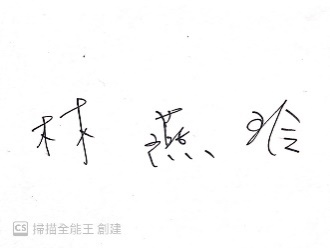 林 燕 玲
CS 掃描全能王 創建